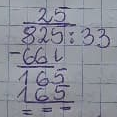 25
825:33
-66↓
165
165
===